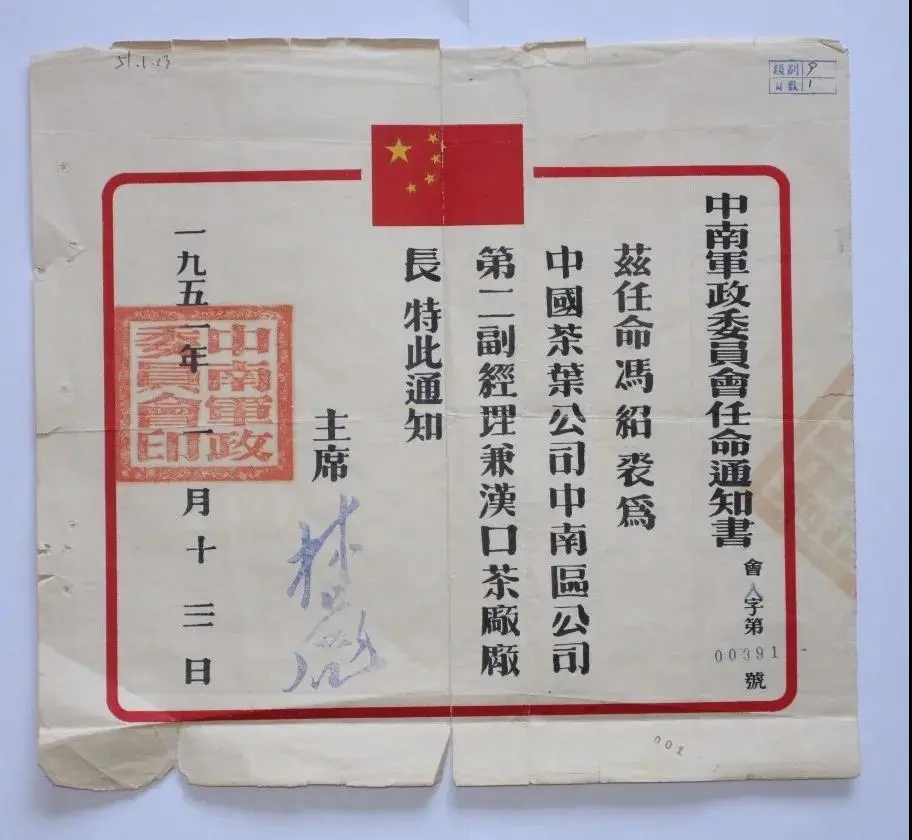 51.1.13
類別 9
1
中南軍政委員會任命通知書
會人字第00391號
茲任命馮紹裘為
中國茶葉公司中南區公司
第二副經理兼漢口茶廠廠
長 特此通知
主席
林彪
一九五一年一月十三日
中南軍政
委員會印